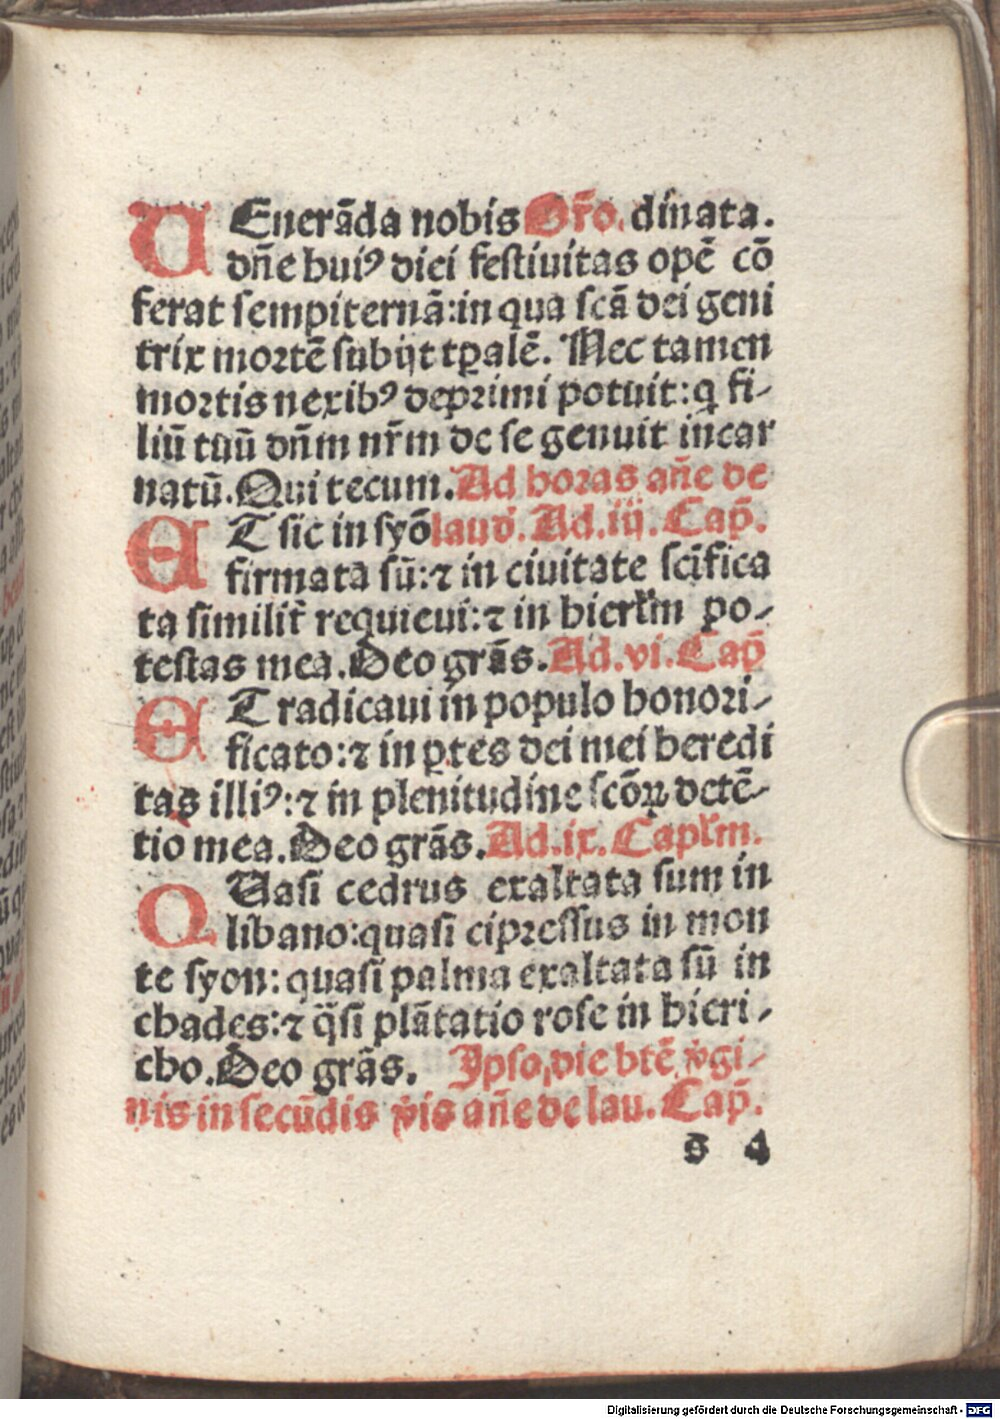 VEnerãda nobis Or̃o. dinata.
dñe huiꝰ diei festiuitas opẽ cõ
ferat sempiternã: in qua scã dei geni
trix mortẽ subijt tꝑalẽ. Nec tamen
mortis nexibꝰ deprimi potuit: q fi-
liũ tuũ dñm nr̃m de se genuit incar
natũ. Qui tecum. Ad horas añe de
ET sic in syõ laud. Ad .iij. Cap̃.
firmata sũ: ⁊ in ciuitate scĩfica
ta similit̃ requieui: ⁊ in hierl̃m po-
testas mea. Deo grãs. Ad .vi. Cap̃
ET radicaui in populo honori-
ficato: ⁊ in ꝑtes dei mei heredi
tas illiꝰ: ⁊ in plenitudine scõꝝ detẽ-
tio mea. Deo grãs. Ad .ix. Capl̃m.
QUasi cedrus exaltata sum in
libano: quasi cipressus in mon
te syon: quasi palma exaltata sũ in
chades: ⁊ q̃si plãtatio rose in hieri-
cho. Deo grãs. Ipso die btẽ v̾gi-
nis in secũdis v̾is añe de lau. Cap̃.
s 4
Digitalisierung gefördert durch die Deutsche Forschungsgemeinschaft - DFG